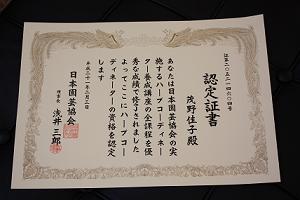 認定証書
茂野佳子殿
あなたは日本園芸協会の実
施するハーブコーディネー
ター養成講座の全課程を優
秀な成績で修了されました
よってここにハーブコー
ディネーターの資格を認定
します
平成二十一年三月三日
日本園芸協会
理事長 浅井三郎